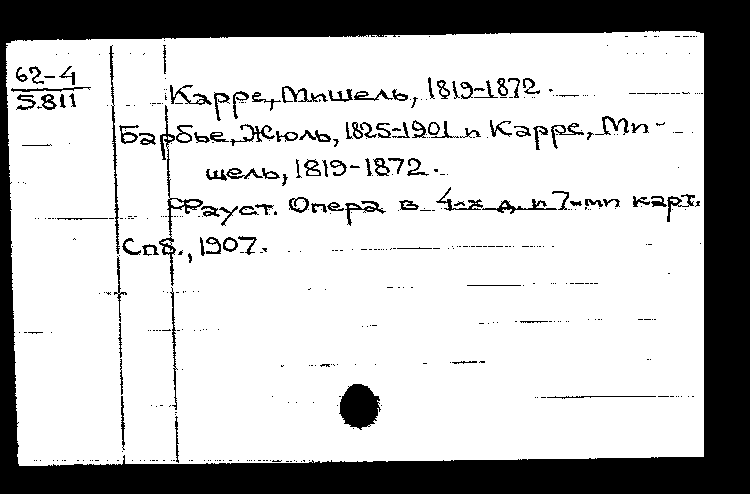 62-4
5811
Карре, Мишель, 1819-1872.
Барбье, Жюль, 1825-1901 и Карре, Ми-
шель, 1819-1872.
Фауст. Опера в 4-х д. и 7-ми карт.
Спб., 1907.